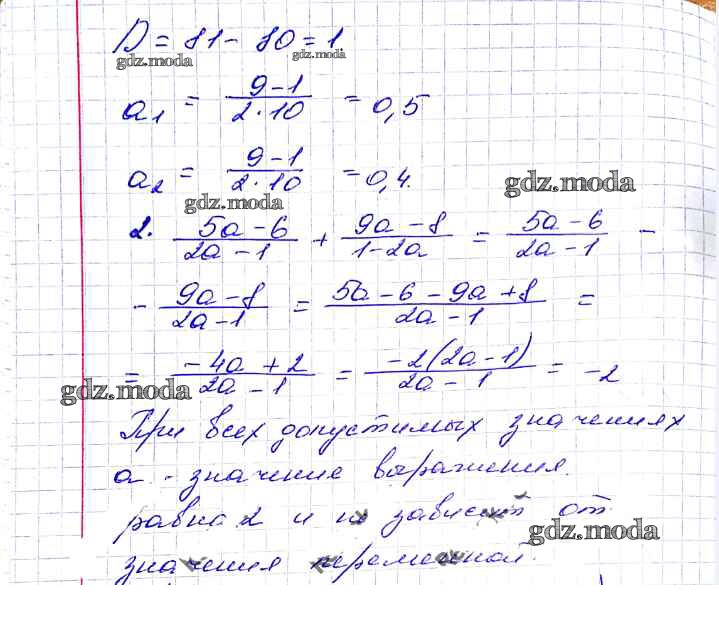 D = 81 - 80 = 1
gdz.moda gdz.moda
a₁ = (9-1)/(2·10) = 0,5
a₂ = (9-1)/(2·10) = 0,4.
gdz.moda gdz.moda
2. (5a-6)/(2a-1) + (9a-8)/(1-2a) = (5a-6)/(2a-1) -
- (9a-8)/(2a-1) = (5a-6-9a+8)/(2a-1) =
= (-4a+2)/(2a-1) = (-2(2a-1))/(2a-1) = -2
gdz.moda
При всех допустимых значениях
a - значение выражения.
равна 2 и не зависит от
gdz.moda
значения переменной.